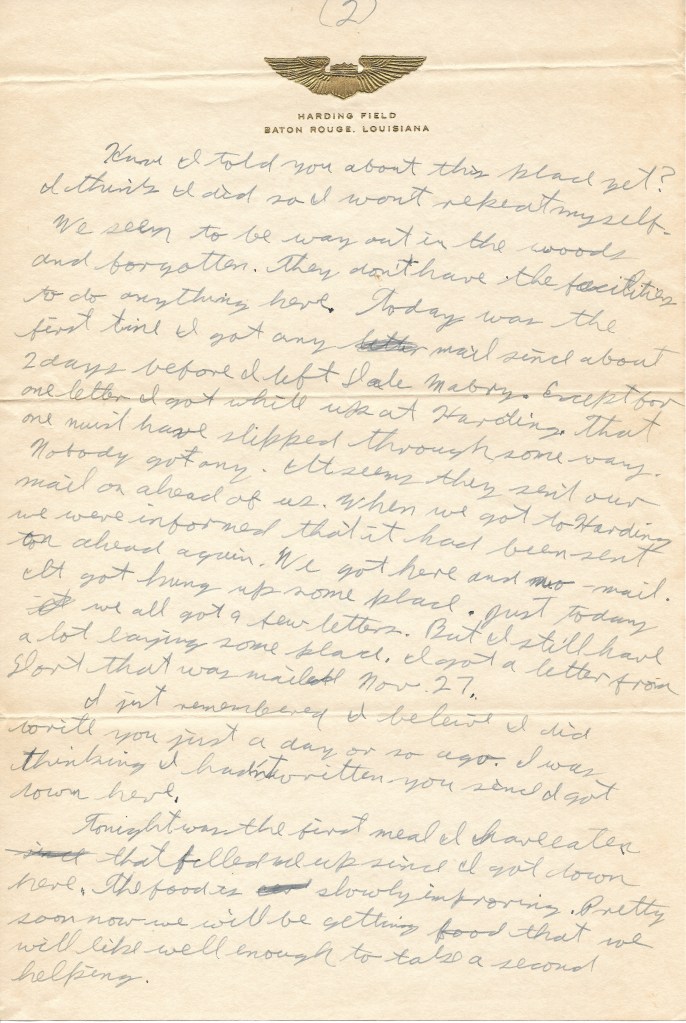 (2)
HARDING FIELD
BATON ROUGE, LOUISIANA
Have I told you about this place yet?
I think I did so I wont repeat myself.
We seem to be way out in the woods
and forgotten. They don't have the facilities
to do anything here. Today was the
first time I got any mail since about
2 days before I left Dale Mabry. Except for
one letter I got while up at Harding. That
one must have slipped through some way.
Nobody got any. It seems they sent our
mail on ahead of us. When we got to Harding
we were informed that it had been sent
on ahead again. We got here and no - mail.
It got hung up some place. Just today
we all got a few letters. But I still have
a lot laying some place. I got a letter from
that was mailed Nov. 27.
I just remembered I beleive I did
write you just a day or so ago. I was
thinking I hadn't written you since I got
down here.
Tonight was the first meal I have eaten
that filled me up since I got down
here. The food is slowly improving. Pretty
soon now we will be getting food that we
will like well enough to take a second
helping.